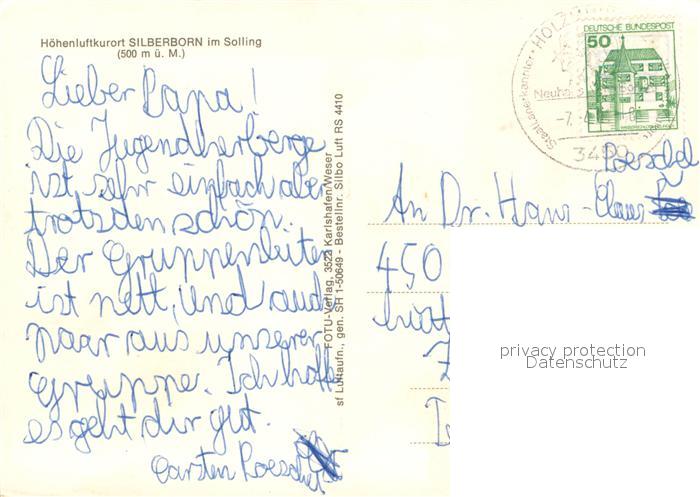 Höhenluftkurort SILBERBORN im Solling
(500 m ü. M.)
Lieber Papa!
Die Jugendherberge
ist sehr einfach aber
trotzden schön.
Der Gruppenleiter
ist nett, und auch
paar aus unserer
Gruppe. Ich hoffe
es geht dir gut.
Carsten Roeschel
FOTU-Verlag, 3523 Karlshafen/Weser
sf Luftaufn., gen. SH 1-50649 - Bestellnr. Silbo Luft RS 4410
DEUTSCHE BUNDESPOST
50
Staatl. anerkannter
HOLZ
Neuhaus
3450
Roeschel
An Dr. Hans-Claus
450
privacy protection
Datenschutz